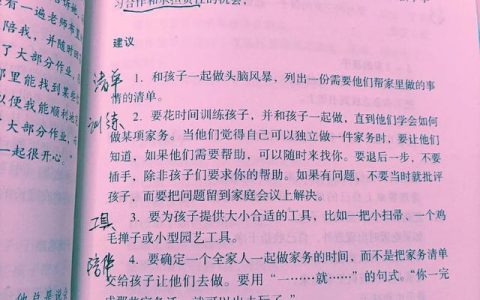 习合作和承担责任的机会，
建议
清单
1. 和孩子一起做头脑风暴，列出一份需要他们帮家里做的事
情的清单。
训练
2. 要花时间训练孩子，并和孩子一起做，直到他们学会如何
做某项家务。当他们觉得自己可以独立做一件家务时，要让他们
知道，如果他们需要帮助，可以随时来找你。要退后一步，不要
插手，除非孩子们要求你的帮助。如果有问题，不要当时就批评
孩子，而要把问题留到家庭会议上解决。
工具
3. 要为孩子提供大小合适的工具，比如一把小扫帚、一个鸡
毛掸子或小型园艺工具。
陪伴
4. 要确定一个全家人一起做家务的时间，而不是把家务清单
交给孩子让他们去做。要用“一……就……”的句式。“你一完
有一遍老师布置
陪我，并随时
了大部分作业，
里能找到某些
以便我能顺利地
大部分作业，
一起很开心。
他总是说